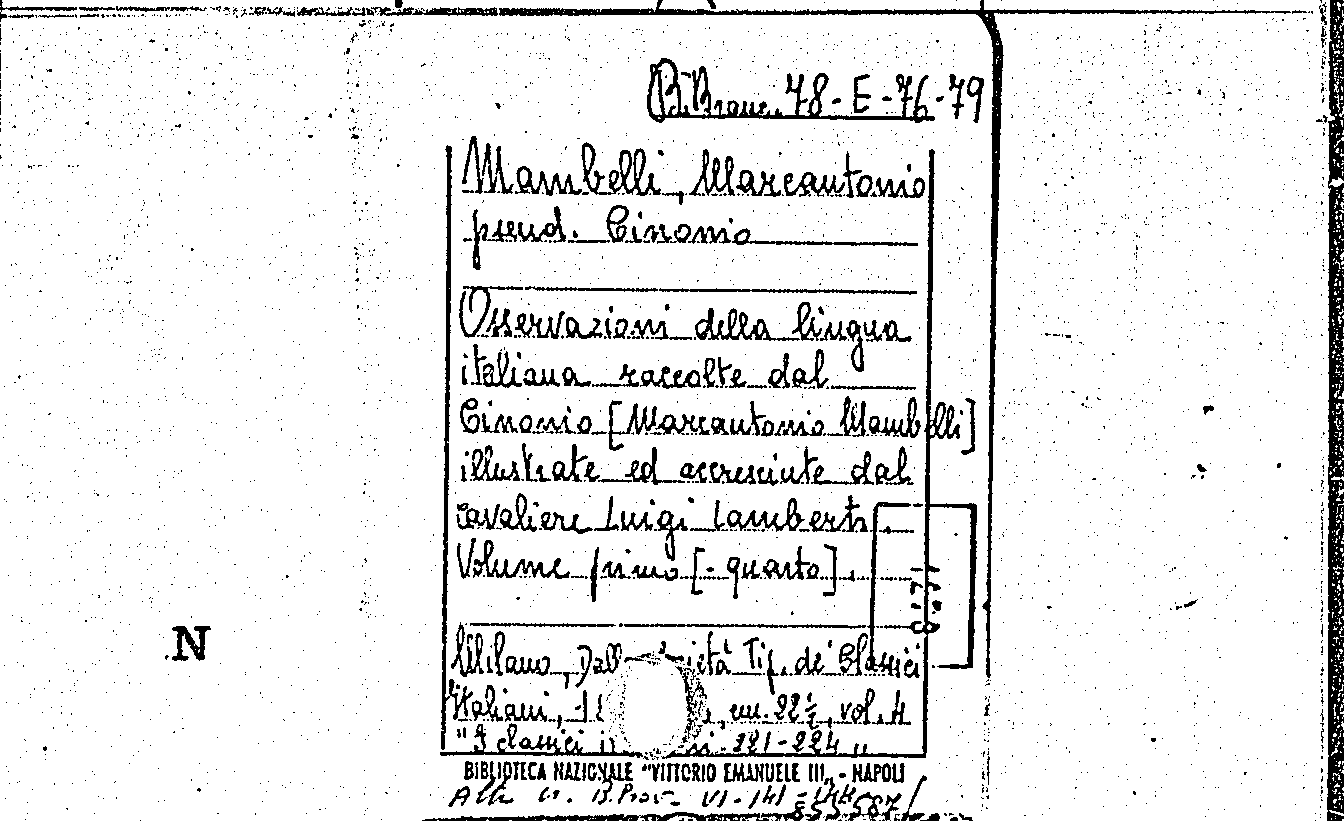 B. Branc. 78-E-76-79
Mambelli, Marcantonio
pseud. Cinonio
Osservazioni della lingua
italiana raccolte dal
Cinonio [Marcantonio Mambelli]
illustrate ed accresciute dal
cavaliere Luigi Lamberti.
Volume primo [-quarto].
Milano, Dall età Tip. de' Classici
Italiani, 1 , cm. 22½, vol. 4
"I classici i ni 221-224"
BIBLIOTECA NAZIONALE "VITTORIO EMANUELE III" - NAPOLI
B. Prov. VI-141-144
N